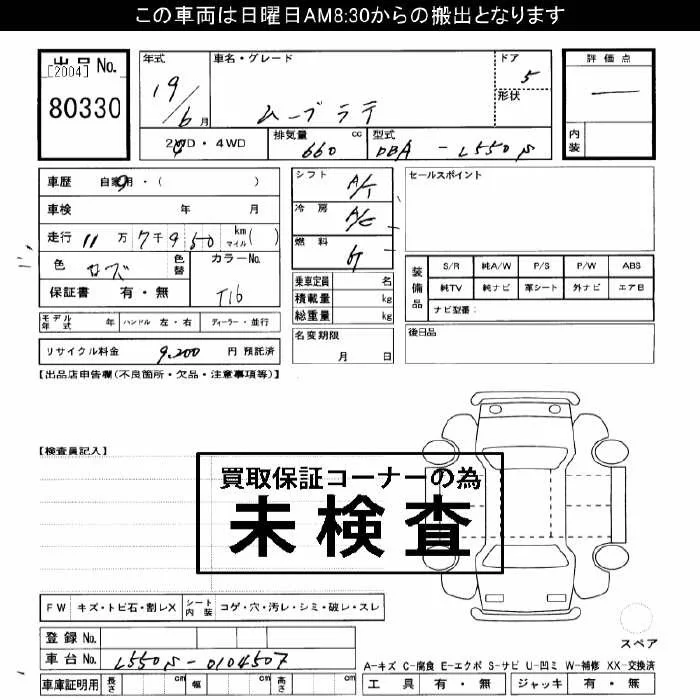 この車両は日曜日AM8:30からの搬出となります
出品 No.
[2004]
80330
年式 19/6月
車名・グレード ムーブラテ
ドア 5
形状
評価点 ―
内装
2WD・4WD
排気量 660 cc
型式 DBA-L550S
車歴 自家用・( )
車検 年 月
走行 11万7千950 km マイル( )
色 ローズ 色替
カラーNo. T16
保証書 有・無
モデル年式 年 ハンドル 左・右 ディーラー・並行
リサイクル料金 9,200 円 預託済
シフト A/T
冷房 A/C
燃料 G
乗車定員 名
積載量 kg
総重量 kg
名変期限 月 日
セールスポイント
装備品 S/R 純A/W P/S P/W ABS
純TV 純ナビ 革シート 外ナビ エアB
ナビ型番:
後日品
【出品店申告欄(不良箇所・欠品・注意事項等)】
【検査員記入】
買取保証コーナーの為
未検査
FW キズ・トビ石・割レX シート内装 コゲ・穴・汚レ・シミ・破レ・スレ
登録 No.
車台 No. L550S-0104507
車庫証明用 長さ cm 幅 cm 高さ cm
スペア
A-キズ C-腐食 E-エクボ S-サビ U-凹ミ W-補修 XX-交換済
工具 有・無 ジャッキ 有・無